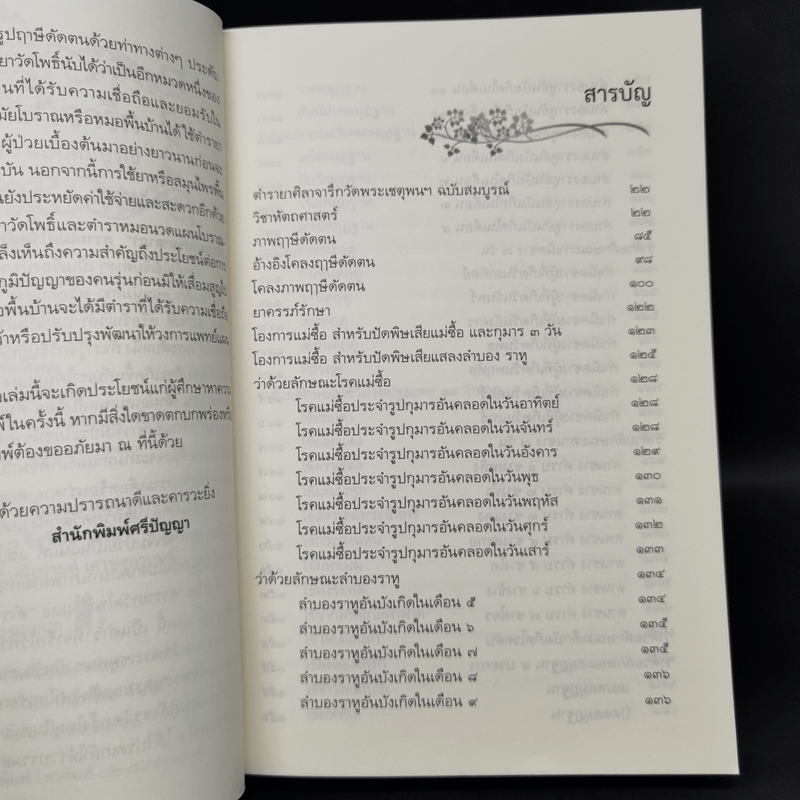 รูปฤาษีดัดตนด้วยท่าทางต่างๆ ประดับ
ยาวัดโพธิ์นับได้ว่าเป็นอีกหมวดหนึ่งของ
นที่ได้รับความเชื่อถือและยอมรับใน
มัยโบราณหรือหมอพื้นบ้านได้ใช้ตำรายา
ผู้ป่วยเบื้องต้นมาอย่างยาวนานก่อนจะ
บัน นอกจากนี้การใช้ยาหรือสมุนไพรพื้น
นยังประหยัดค่าใช้จ่ายและสะดวกอีกด้วย
าวัดโพธิ์และตำราหมอนวดแผนโบราณ
ล็งเห็นถึงความสำคัญถึงประโยชน์ต่อการ
ภูมิปัญญาของคนรุ่นก่อนมิให้เสื่อมสูญไป
อพื้นบ้านจะได้มีตำราที่ได้รับความเชื่อถือ
ว้าหรือปรับปรุงพัฒนาให้วงการแพทย์แผน
อเล่มนี้จะเกิดประโยชน์แก่ผู้ศึกษาหาความ
พ์ในครั้งนี้ หากมีสิ่งใดขาดตกบกพร่องหรือ
พ์ต้องขออภัยมา ณ ที่นี้ด้วย
ด้วยความปรารถนาดีและคารวะยิ่ง
สำนักพิมพ์ศรีปัญญา
สารบัญ
ตำรายาศิลาจารึกวัดพระเชตุพนฯ ฉบับสมบูรณ์ ๒๒
วิชาหัตถศาสตร์ ๒๒
ภาพฤาษีดัดตน ๘๕
อ้างอิงโคลงฤาษีดัดตน ๙๘
โคลงภาพฤาษีดัดตน ๑๐๐
ยาครรภ์รักษา ๑๒๒
โองการแม่ซื้อ สำหรับปัดพิษเสียแม่ซื้อ และกุมาร ๓ วัน ๑๒๓
โองการแม่ซื้อ สำหรับปัดพิษเสียแสลงลำบอง ราหู ๑๒๕
ว่าด้วยลักษณะโรคแม่ซื้อ ๑๒๘
โรคแม่ซื้อประจำรูปกุมารอันคลอดในวันอาทิตย์ ๑๒๘
โรคแม่ซื้อประจำรูปกุมารอันคลอดในวันจันทร์ ๑๒๘
โรคแม่ซื้อประจำรูปกุมารอันคลอดในวันอังคาร ๑๒๙
โรคแม่ซื้อประจำรูปกุมารอันคลอดในวันพุธ ๑๓๐
โรคแม่ซื้อประจำรูปกุมารอันคลอดในวันพฤหัส ๑๓๑
โรคแม่ซื้อประจำรูปกุมารอันคลอดในวันศุกร์ ๑๓๒
โรคแม่ซื้อประจำรูปกุมารอันคลอดในวันเสาร์ ๑๓๓
ว่าด้วยลักษณะลำบองราหู ๑๓๔
ลำบองราหูอันบังเกิดในเดือน ๕ ๑๓๔
ลำบองราหูอันบังเกิดในเดือน ๖ ๑๓๕
ลำบองราหูอันบังเกิดในเดือน ๗ ๑๓๕
ลำบองราหูอันบังเกิดในเดือน ๘ ๑๓๖
ลำบองราหูอันบังเกิดในเดือน ๙ ๑๓๖